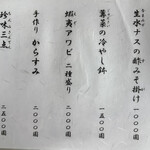 生水ナスの酢みそ掛け 一〇〇〇圓
蓴菜の冷やし鉢 一五〇〇圓
蝦夷アワビ 二種盛り 二八〇〇圓
手作り からすみ 二〇〇〇圓
珍味三点 二五〇〇圓